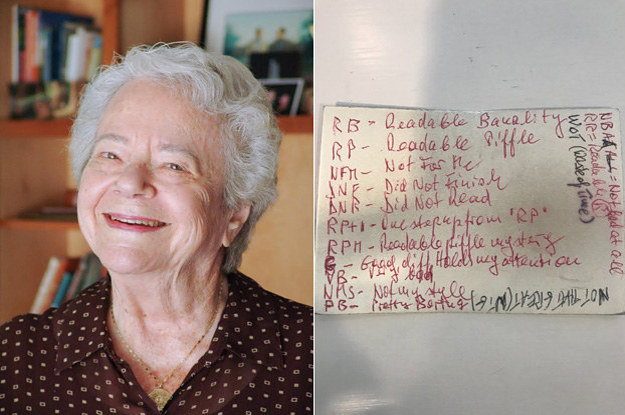 RB - Readable Banality
RP - Readable Piffle
NFM - Not For Me
DNF - Did Not Finish
DNR - Did Not Read
RP+1 - One step up from "RP"
RPM - Readable piffle mystery
G - Good, diff. Holds my attention
VB - bad
NMS - Not my style
PB - Pretty Boring
NOT THAT GREAT (NTG)
WOT (Waste of Time)
NBAA = Not Bad at all